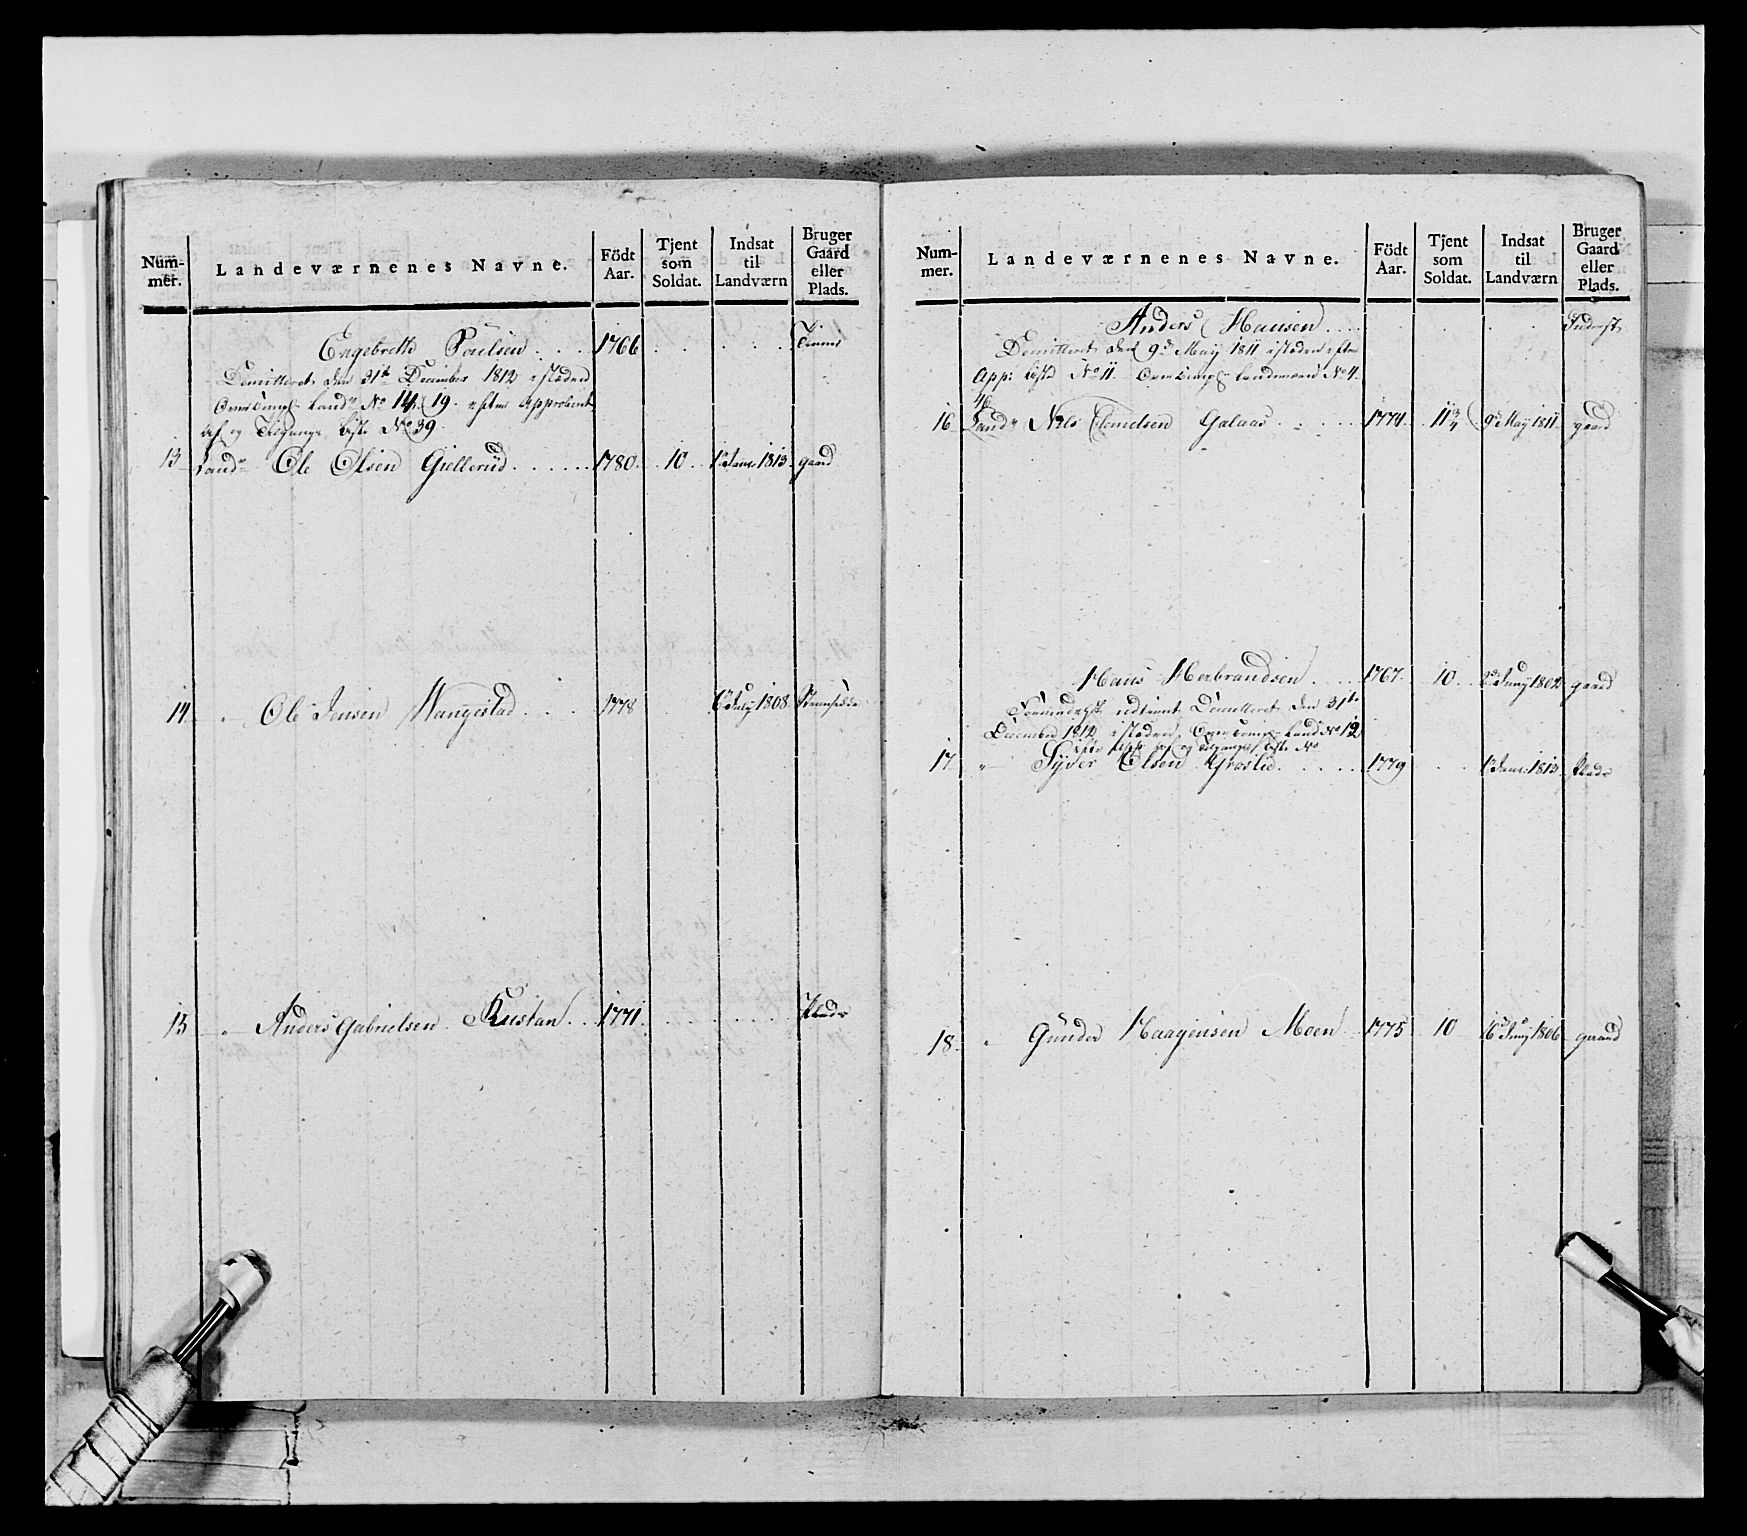 Num-
mer.
Landeværnenes Navne.
Födt
Aar.
Tjent
som
Soldat.
Indsat
til
Landværn
Bruger
Gaard
eller
Plads.
Engebreth Poulsen . . . 1766
Demitteret den 31te December 1812 istæden
Land No 14/19 efter Approberet
Af og Tilgangs Liste No 39.
13 Land Ole Olsen Gielleriud . . . . . . 1780 . 10 . 1 Janr 1813 gaard
14 " Ole Jensen Hangestad . . . 1778 6 July 1808
15 " Anders Gabrielsen Rustan . . 1771 . . . . . . Plads
Num-
mer.
Landeværnenes Navne.
Födt
Aar.
Tjent
som
Soldat.
Indsat
til
Landværn
Bruger
Gaard
eller
Plads.
Anders Hansen . . . .
Demitteret den 9de May 1811 istæden efter
App: Liste No 11. Landeværn No 4.
16 Land Nils Galaas . . . . 1774 11 3/4 9de May 1811 gaard
Hans Herbrandsen . . . 1767. 10 . Juny 1802 gaard
udtient Demitteret den 31te
December 1812, istæden Land No 12
efter App: Af og Tilgangs Liste No
17 " Syver Olsen Graslie . . . . . 1779 . . 1 Janr 1813 Plads
18 " Gunder Haagensen Moen 1775 10 16de Juny 1806 gaard